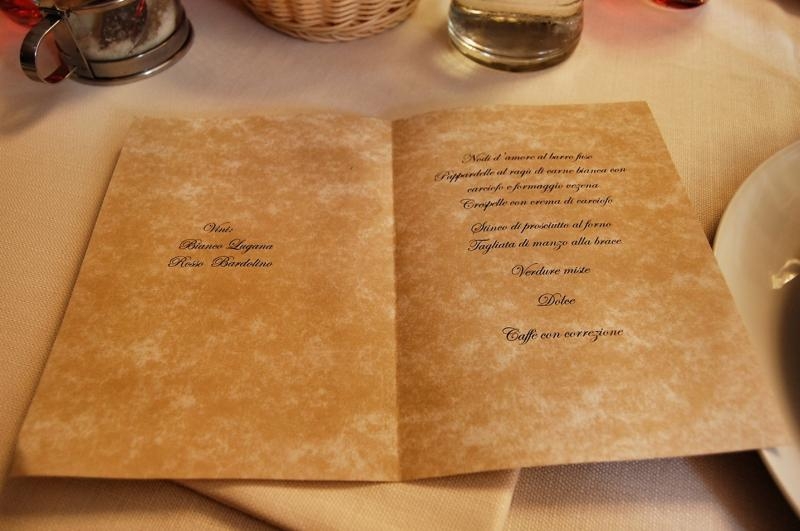 Vini:
Bianco Lugana
Rosso Bardolino
Nodi d'amore al burro fuso
Pappardelle al ragù di carne bianca con
carciofo e formaggio vezena
Crespelle con crema di carciofo
Stinco di prosciutto al forno
Tagliata di manzo alla brace
Verdure miste
Dolce
Caffè con correzione